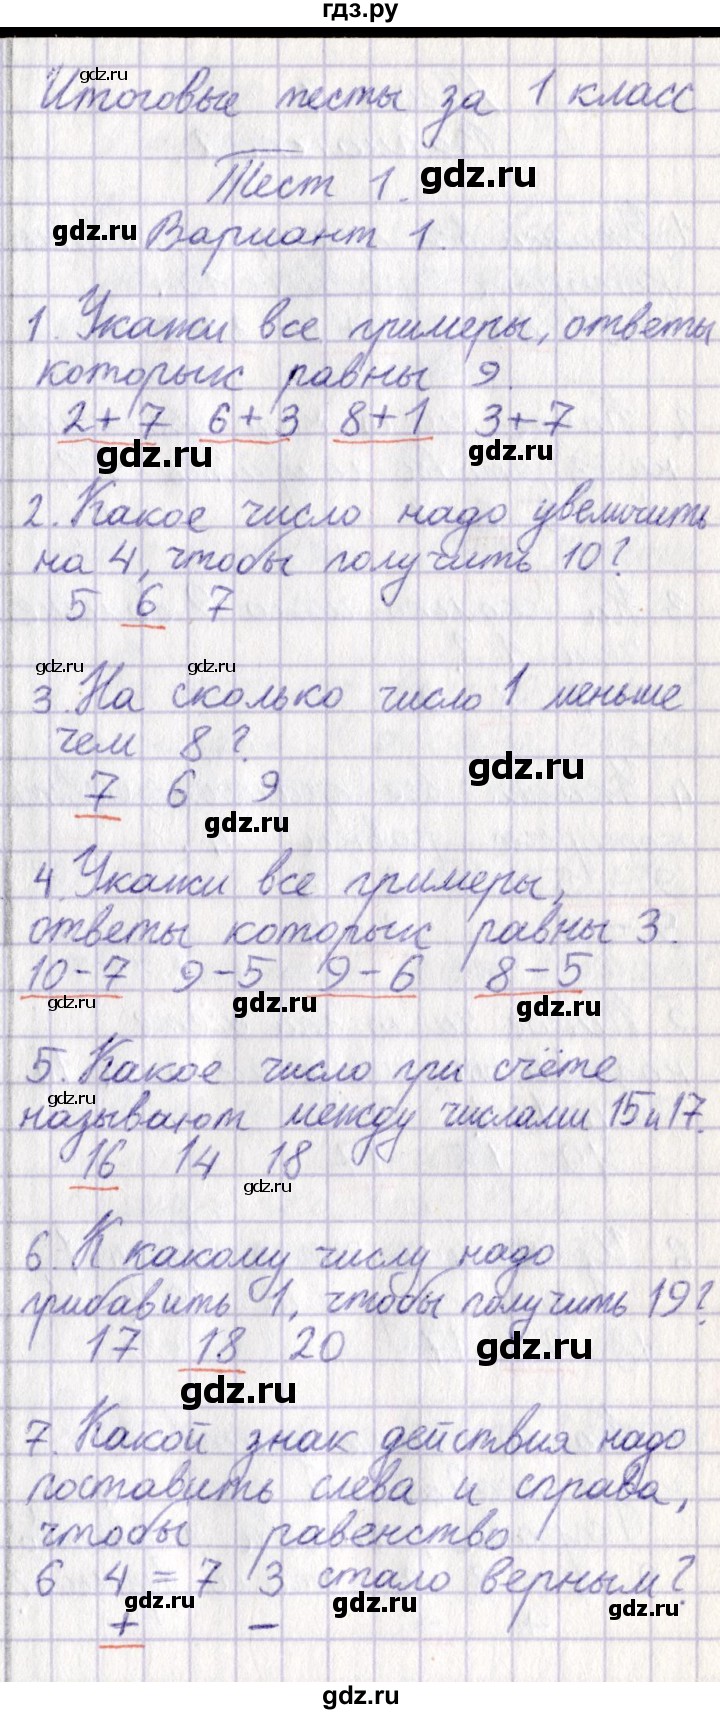 гдз.ру
gdz.ru
Итоговые тесты за 1 класс
Тест 1. gdz.ru
gdz.ru Вариант 1.
1. Укажи все примеры, ответы
которых равны 9.
2+7 6+3 8+1 3+7
gdz.ru gdz.ru
2. Какое число надо увеличить
на 4, чтобы получить 10?
5 6 7
gdz.ru gdz.ru
3. На сколько число 1 меньше
чем 8?
gdz.ru
7 6 9
gdz.ru
4. Укажи все примеры,
ответы которых равны 3.
10-7 9-5 9-6 8-5
gdz.ru gdz.ru gdz.ru
5. Какое число при счёте
gdz.ru
называют между числами 15 и 17.
16 14 18
gdz.ru
6. К какому числу надо
прибавить 1, чтобы получить 19?
17 18 20 gdz.ru
gdz.ru
7. Какой знак действия надо
поставить слева и справа,
чтобы равенство
6 4 = 7 3 стало верным?
gdz.ru gdz.ru gdz.ru
+ -
gdz.ru